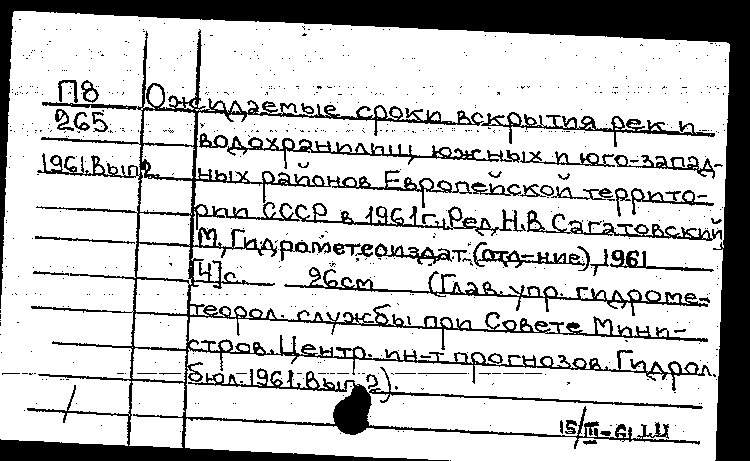 П8
265
1961.Вып.2.
Ожидаемые сроки вскрытия рек и
водохранилищ южных и юго-запад-
ных районов Европейской террито-
рии СССР в 1961г., Ред. Н.В. Сагатовский
М., Гидрометеоиздат (отд-ние), 1961
[4]с. 26см (Глав. упр. гидроме-
теорол. службы при Совете Мини-
стров. Центр. ин-т прогнозов. Гидрол.
бюл. 1961. Вып. 2).
15/III-61.